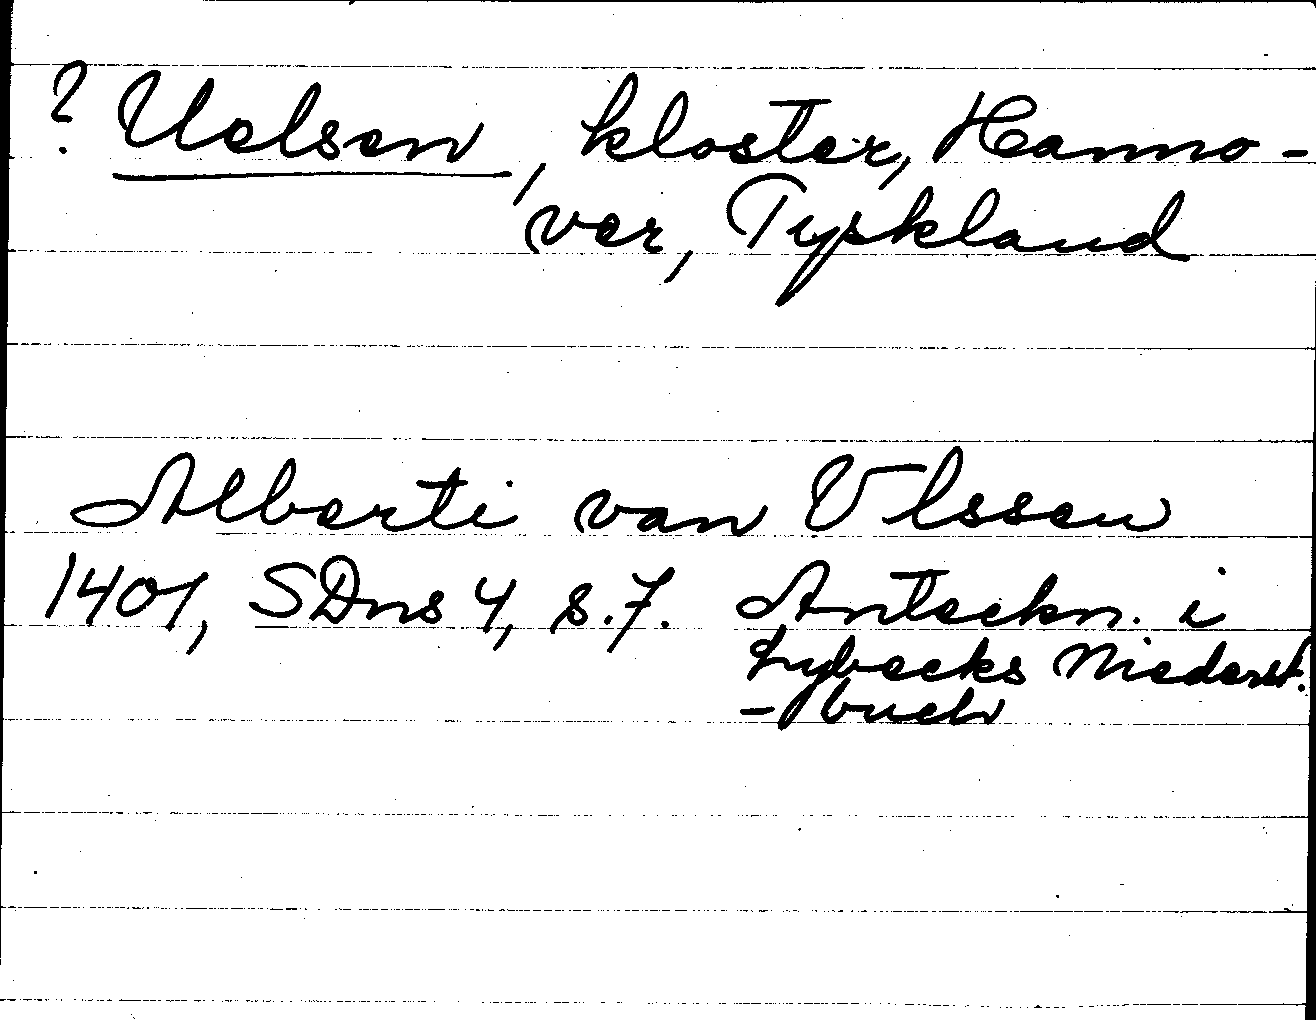 ? Uelsen, kloster, Hanno-
ver, Tyskland
Alberti van Ulssen
1401, SDns 4, s. 7. Anteckn. i
Lybecks Niederst.
-buch